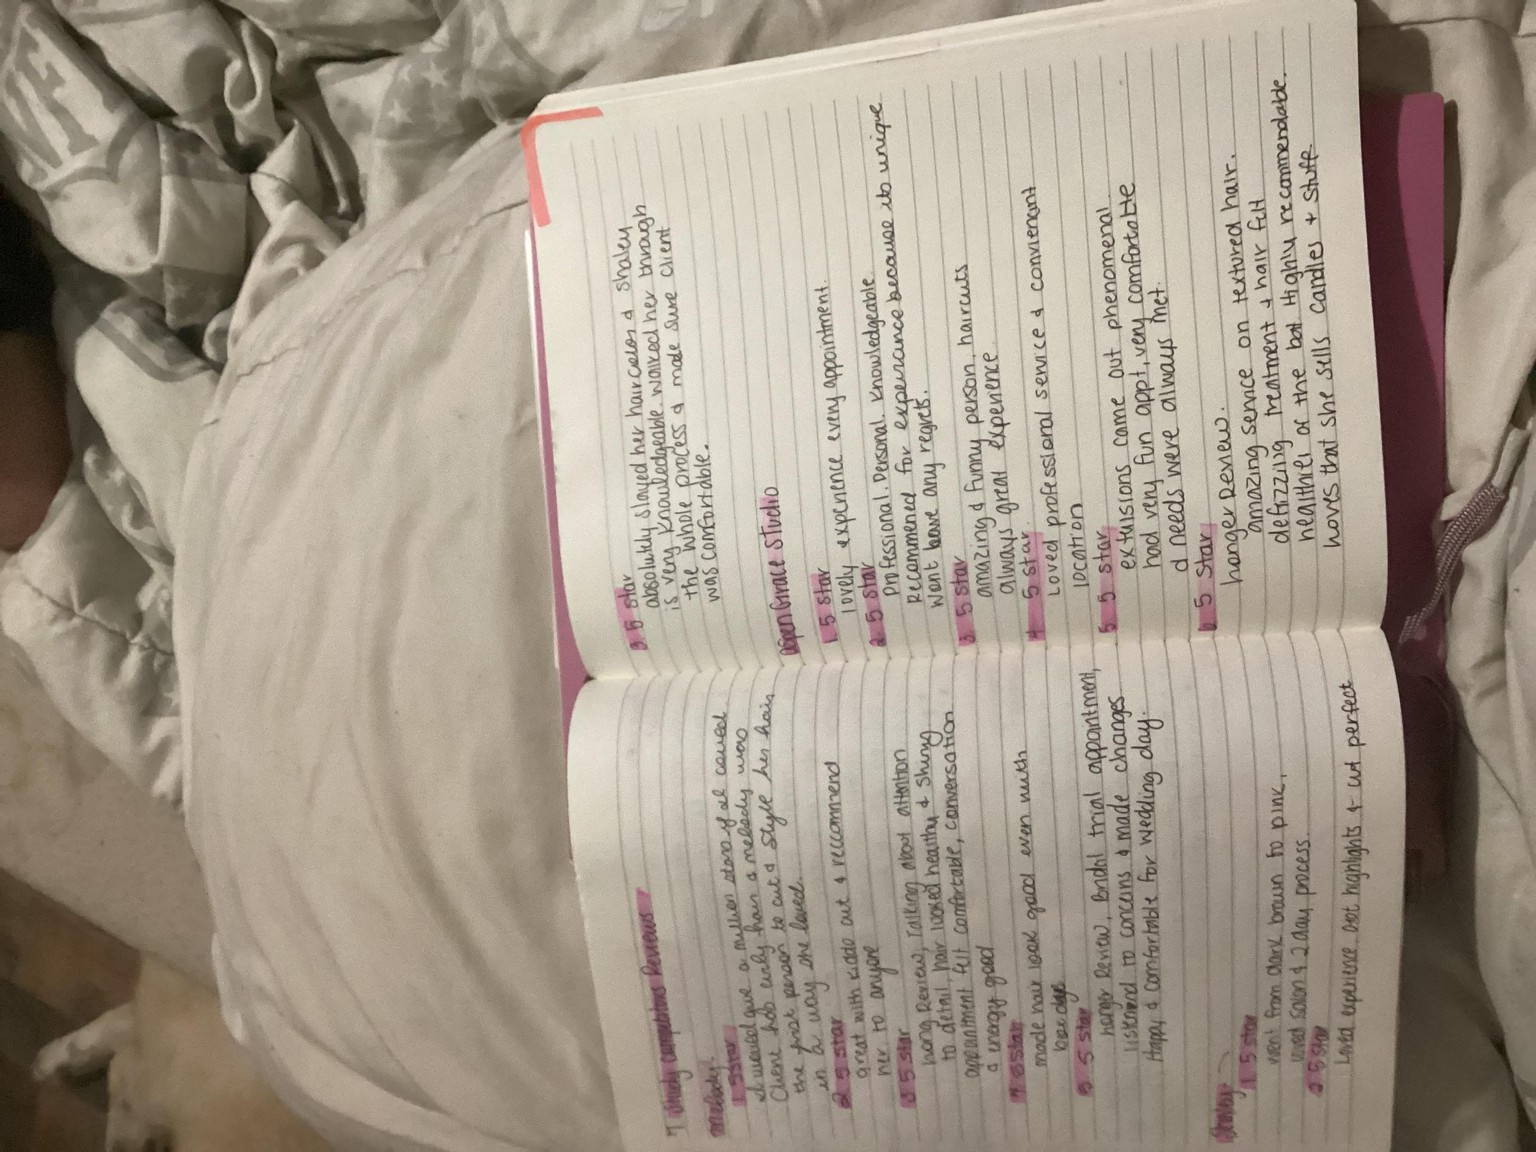 7 Study Competitors Reviews
melody.
1 5 star
I would give a million stars if I could
Client has curly hair & melody was
the first person to cut & style her hair
in a way she loved.
2 5 star
great with kiddo cut & reccommend
her to anyone
3 5 star
Long Review, talking about attention
to detail, hair looked healthy & shiny
appointment felt comfortable, conversation
& energy good
4 5 star
made hair look good even with
5 5 star
longer Review, Bridal trial appointment,
listened to concerns & made changes
Happy & comfortable for wedding day.
Shaley
1 5 star
went from dark brown to pink,
loved salon & 2 day process.
2 5 star
Loved experience but highlights & cut perfect
3 5 star
absolutely slayed her hair color & Shaley
is very knowledgeable. walked her through
the whole process & made sure client
was comfortable.
Aspen Grace Studio
1 5 star
lovely experience every appointment.
2 5 star
Professional. Personal. Knowledgeable
Recommened for experience because its unique
Wont have any regrets.
3 5 star
amazing & funny person, haircuts
always great experience
4 5 star
Loved professional service & convienant
location
5 5 star
extensions came out phenomenal
had very fun appt, very comfortable
& needs were always met.
6 5 star
longer Review.
amazing service on textured hair.
defrizzing treatment & hair felt
healthier of the bat Highly recommendable.
loves that she sells candles + Stuff